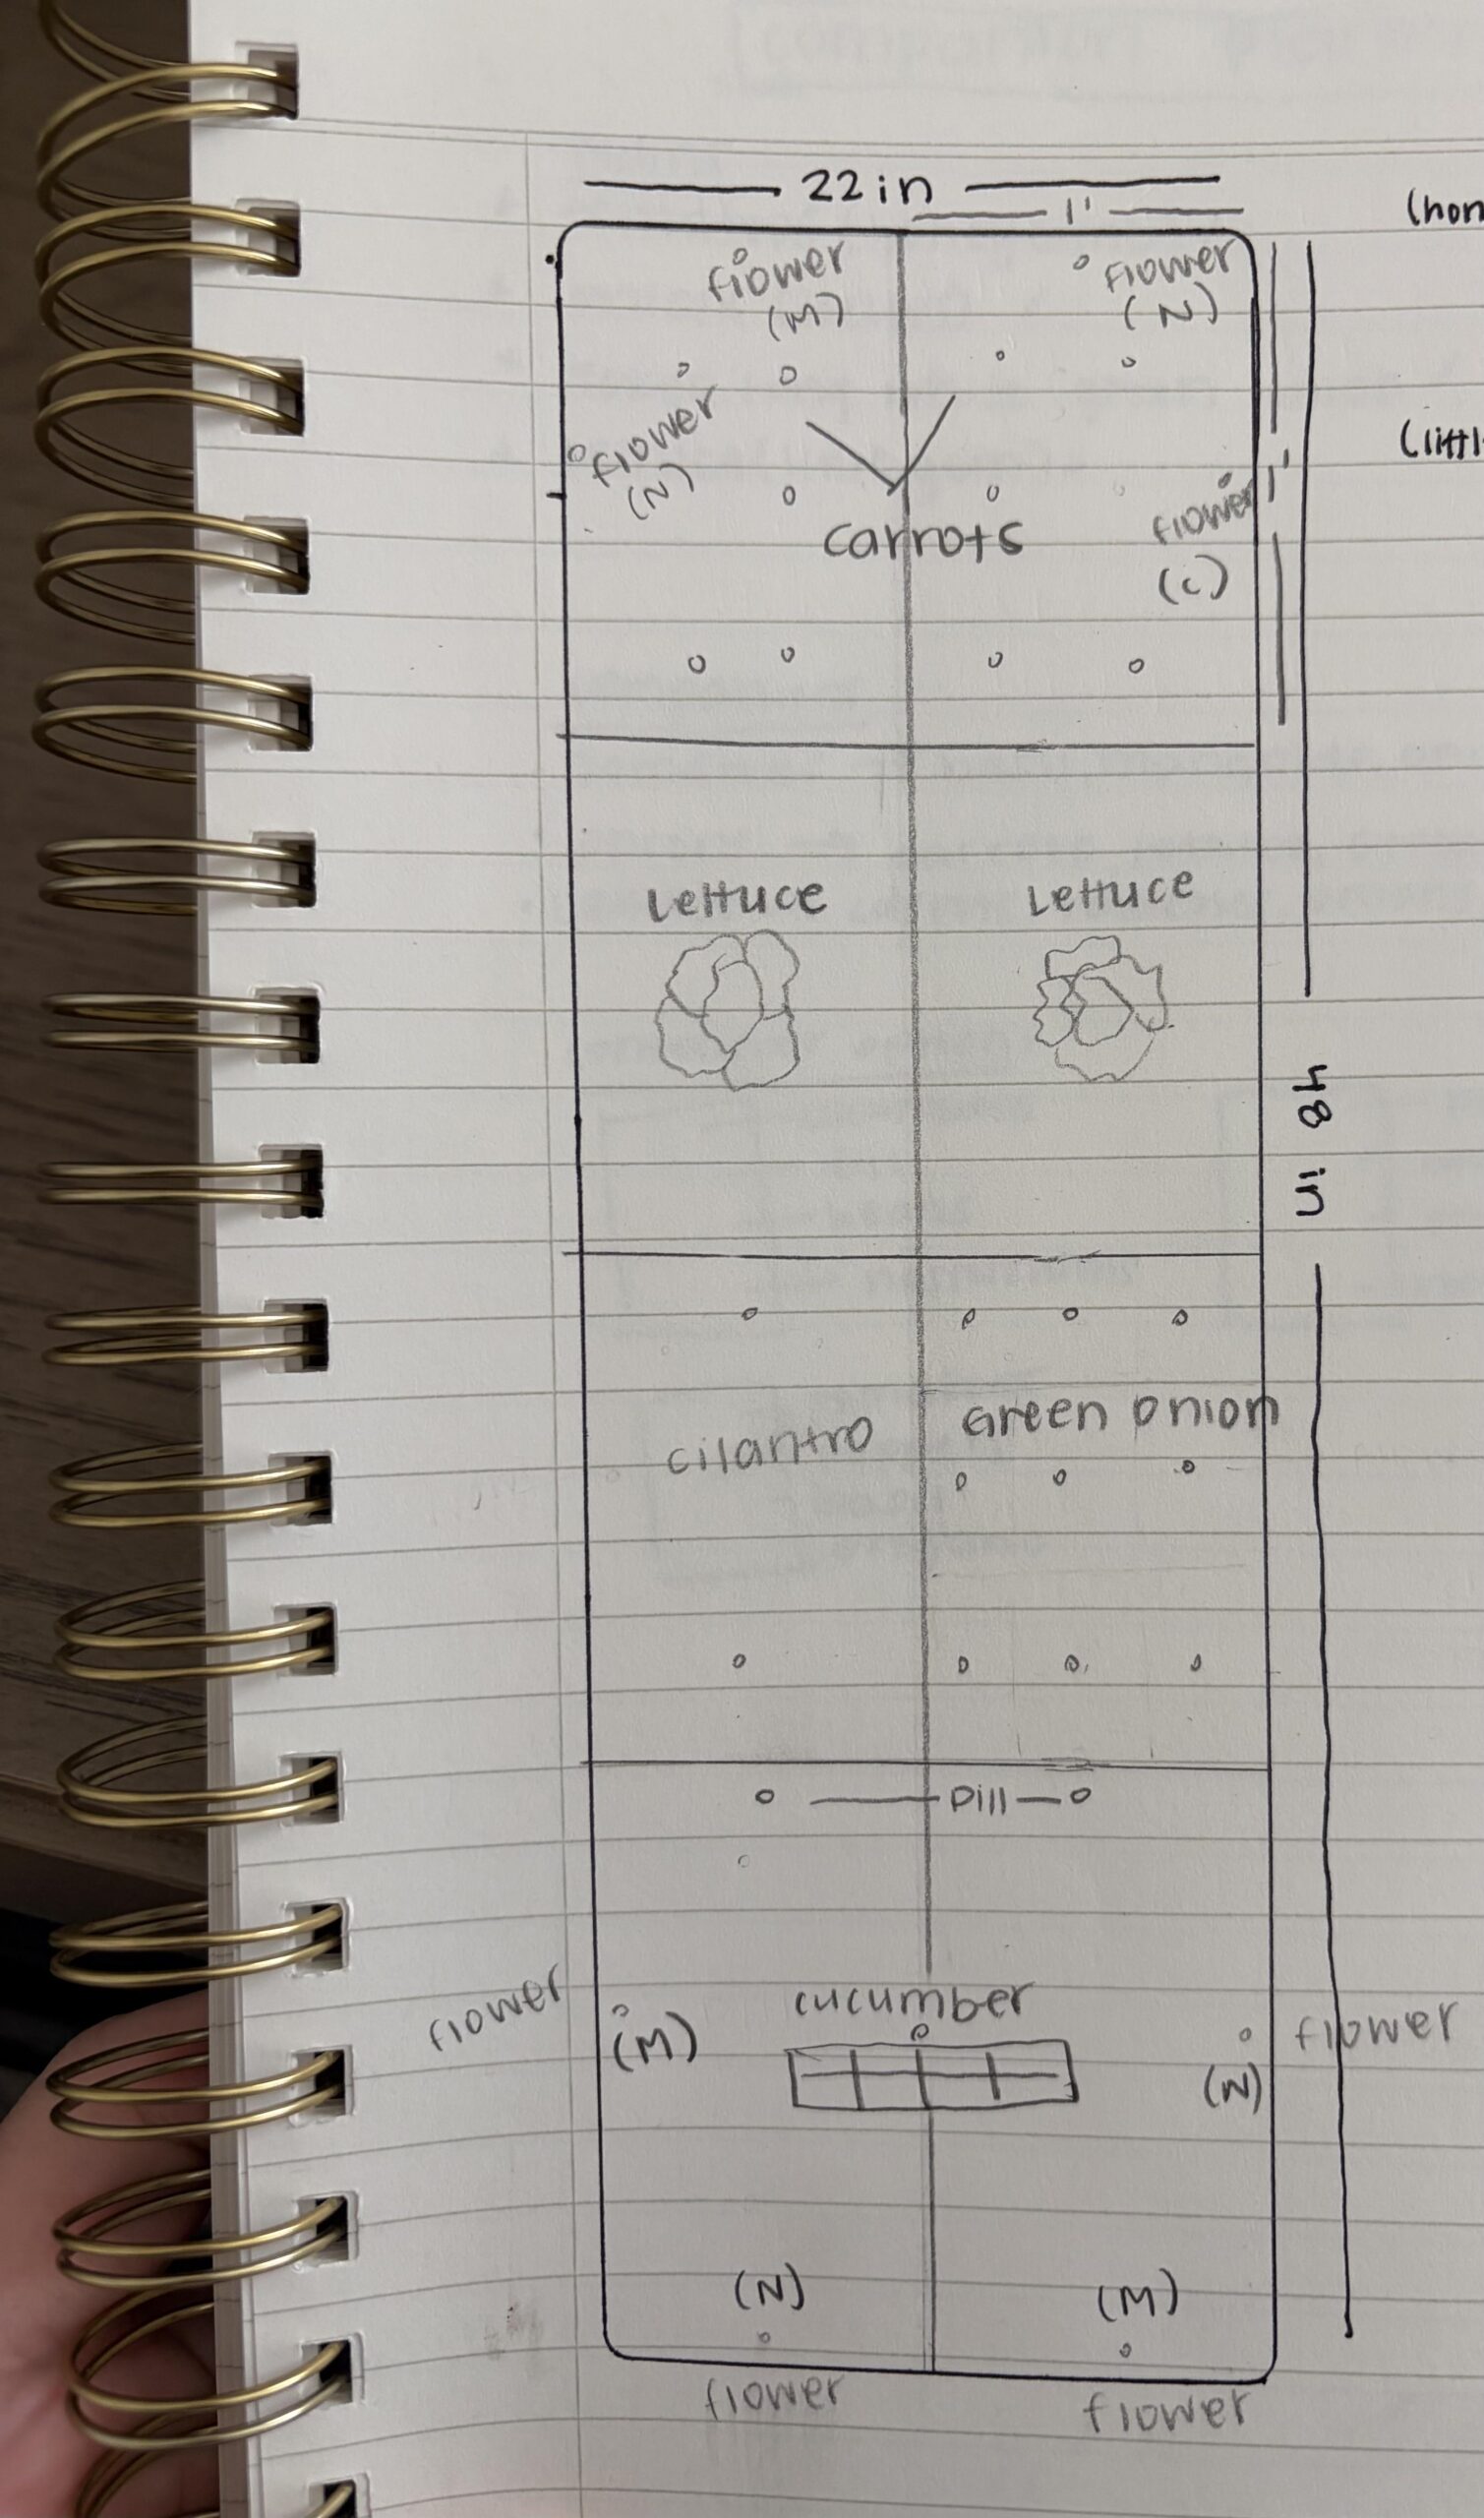 22in
1'
(hon
flower
(M)
flower
(N)
flower
(N)
(littl
1'
flower
(c)
carrots
Lettuce
Lettuce
48 in
cilantro
Green onion
Dill
flower
(M)
cucumber
flower
(N)
(N)
(M)
flower
flower